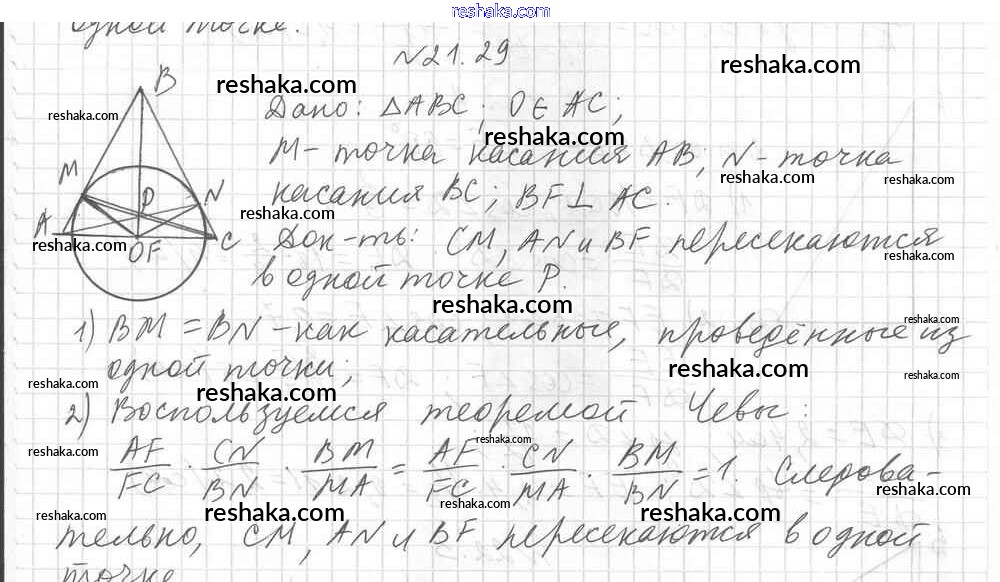 reshaka.com
одной точке.
№21.29
reshaka.com reshaka.com
B
Дано: △ABC; O∈AC;
reshaka.com
reshaka.com
M- точка касания AB; N- точка
M
reshaka.com reshaka.com
касания BC; BF⊥ AC.
P N
A reshaka.com
Док-ть: CM, AN и BF пересекаются
reshaka.com OF C reshaka.com
в одной точке P.
reshaka.com
1) BM = BN -как касательные, проведённые из
reshaka.com
одной точки;
reshaka.com reshaka.com reshaka.com reshaka.com
2) Воспользуемся теоремой Чевы:
reshaka.com reshaka.com
AF/FC · CN/BN · BM/MA = AF/FC · CN/MA · BM/BN = 1. Следова-
reshaka.com
reshaka.com reshaka.com reshaka.com reshaka.com
тельно, CM, AN и BF пересекаются в одной
точке